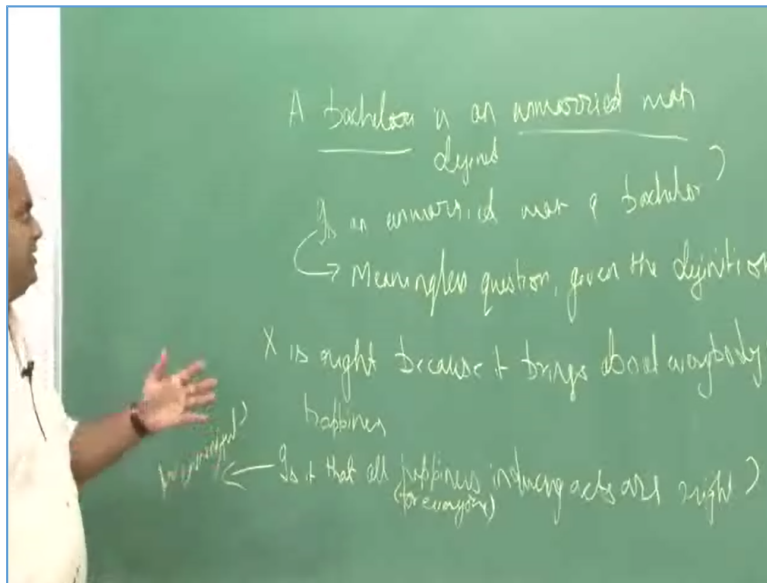 A bachelor is an unmarried man
defined
Is an unmarried man a bachelor?
→ Meaningless question, given the definition
X is right because it brings about everybody
happiness
Is it that all happiness inducing acts are right?
(for everyone)